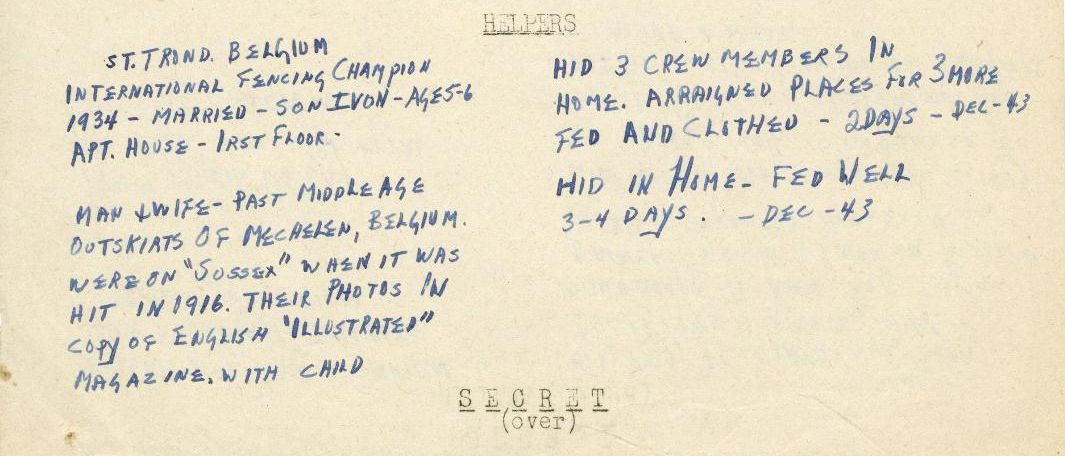 HELPERS
ST. TROND. BELGIUM
INTERNATIONAL FENCING CHAMPION
1934 - MARRIED - SON IVON - AGE 5-6
APT. HOUSE - 1RST FLOOR -
HID 3 CREW MEMBERS IN
HOME. ARRAIGNED PLACES FOR 3 MORE
FED AND CLOTHED - 2 DAYS - DEC - 43
MAN & WIFE - PAST MIDDLE AGE
OUTSKIRTS OF MECHELEN, BELGIUM.
WERE ON "SUSSEX" WHEN IT WAS
HIT IN 1916. THEIR PHOTOS IN
COPY OF ENGLISH "ILLUSTRATED"
MAGAZINE. WITH CHILD
HID IN HOME - FED WELL
3-4 DAYS. - DEC - 43
SECRET
(over)